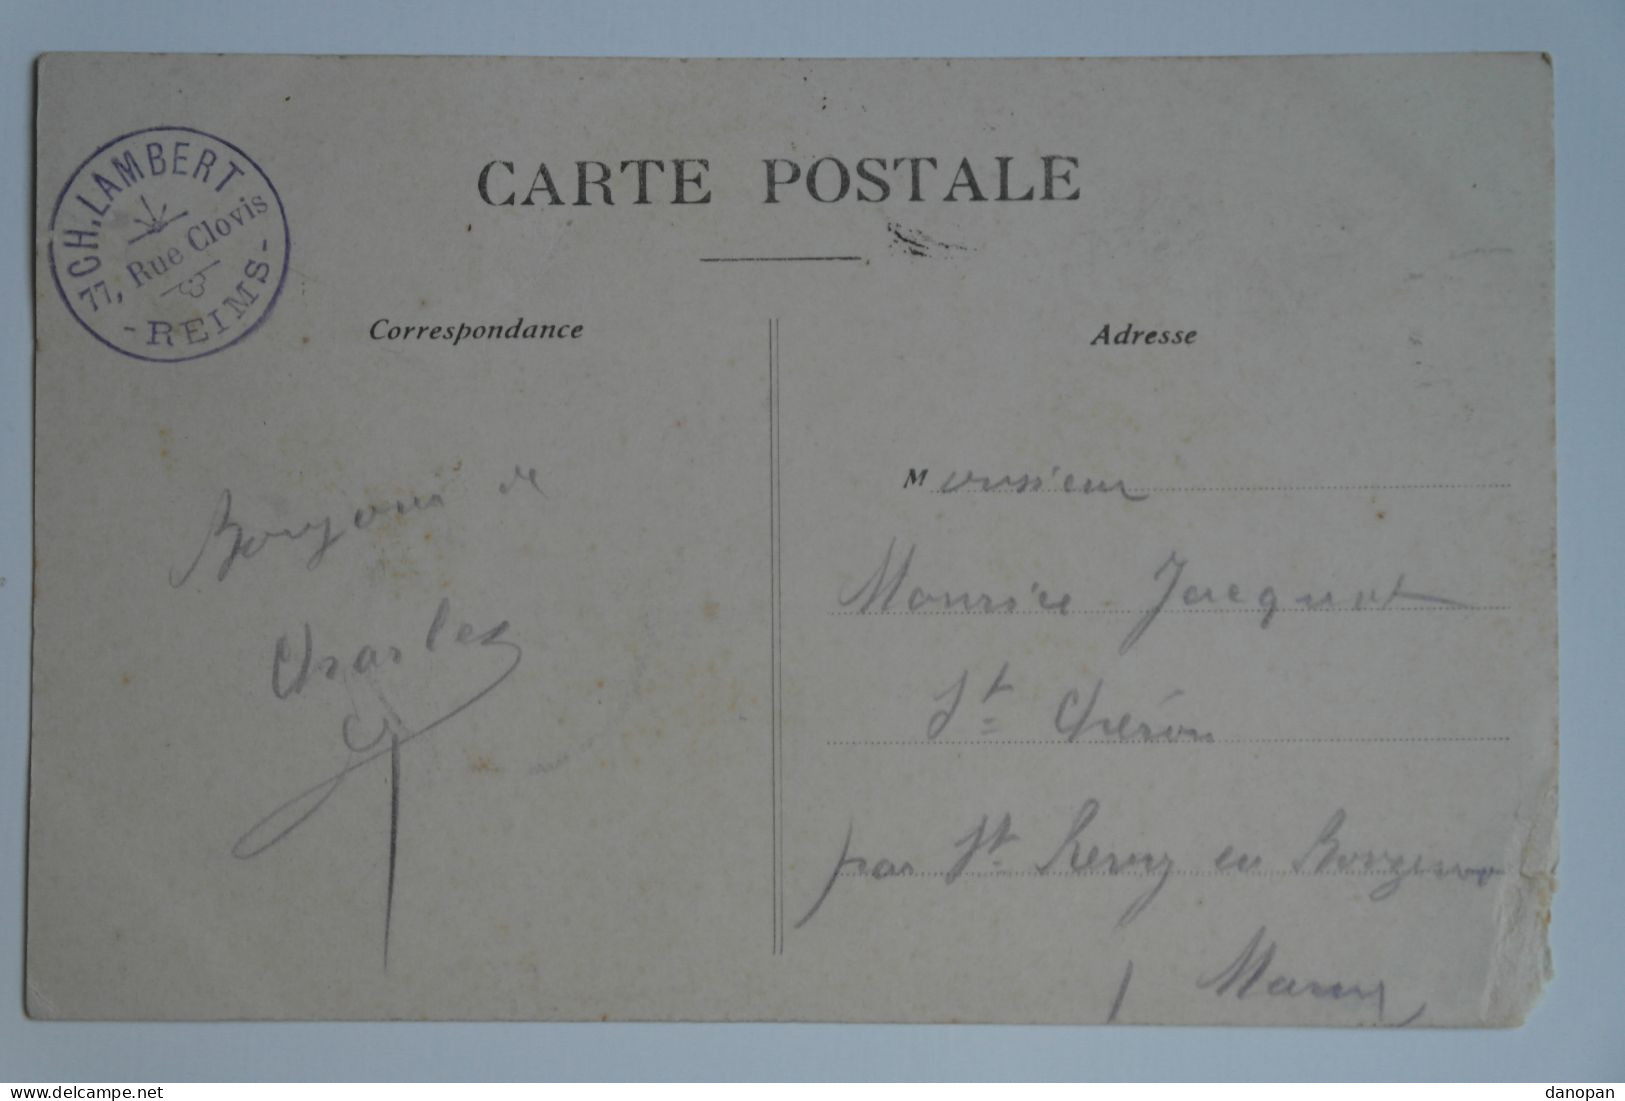 CH. LAMBERT
77, Rue Clovis
- REIMS -
CARTE POSTALE
Correspondance
Adresse
Bonjour de
Charles
Monsieur
Maurice Jacquot
St Chéron
par St Remy en Bouzemont
Marne
delcampe.net
danopan